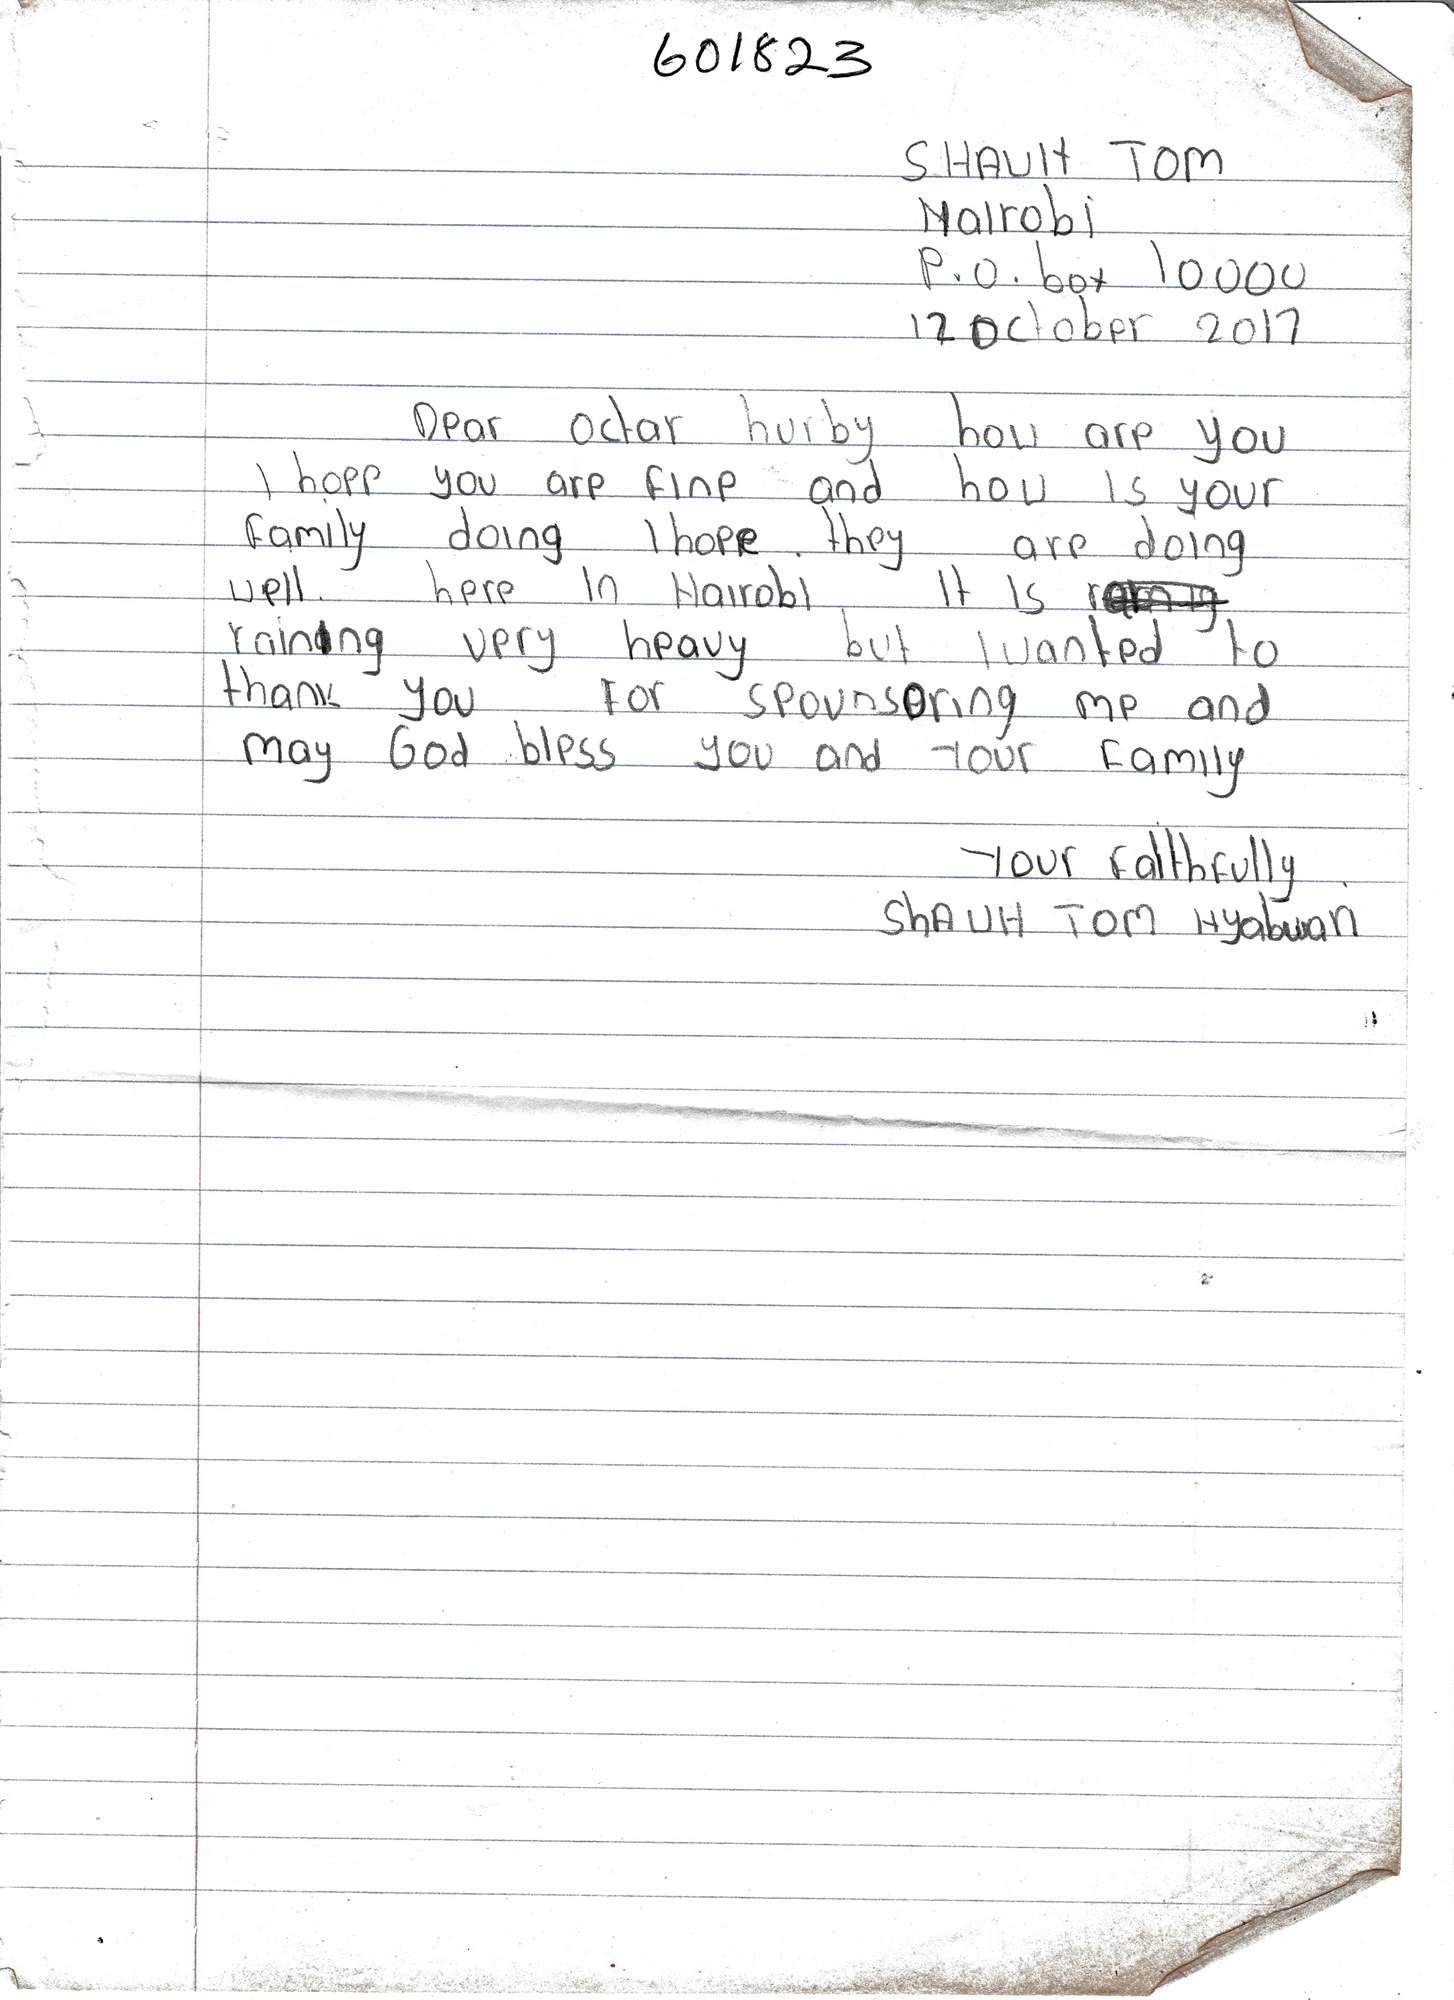 601823
SHAUH TOM
Nairobi
P.O. box 10000
12 October 2017
Dear octar hurby how are you
I hope you are fine and how is your
family doing I hope. they are doing
well. here in Nairobi it is
raining very heavy but I wanted to
thank you for spounsoring me and
may God bless you and Your family
Your faithfully
ShAUH TOM Nyabwan